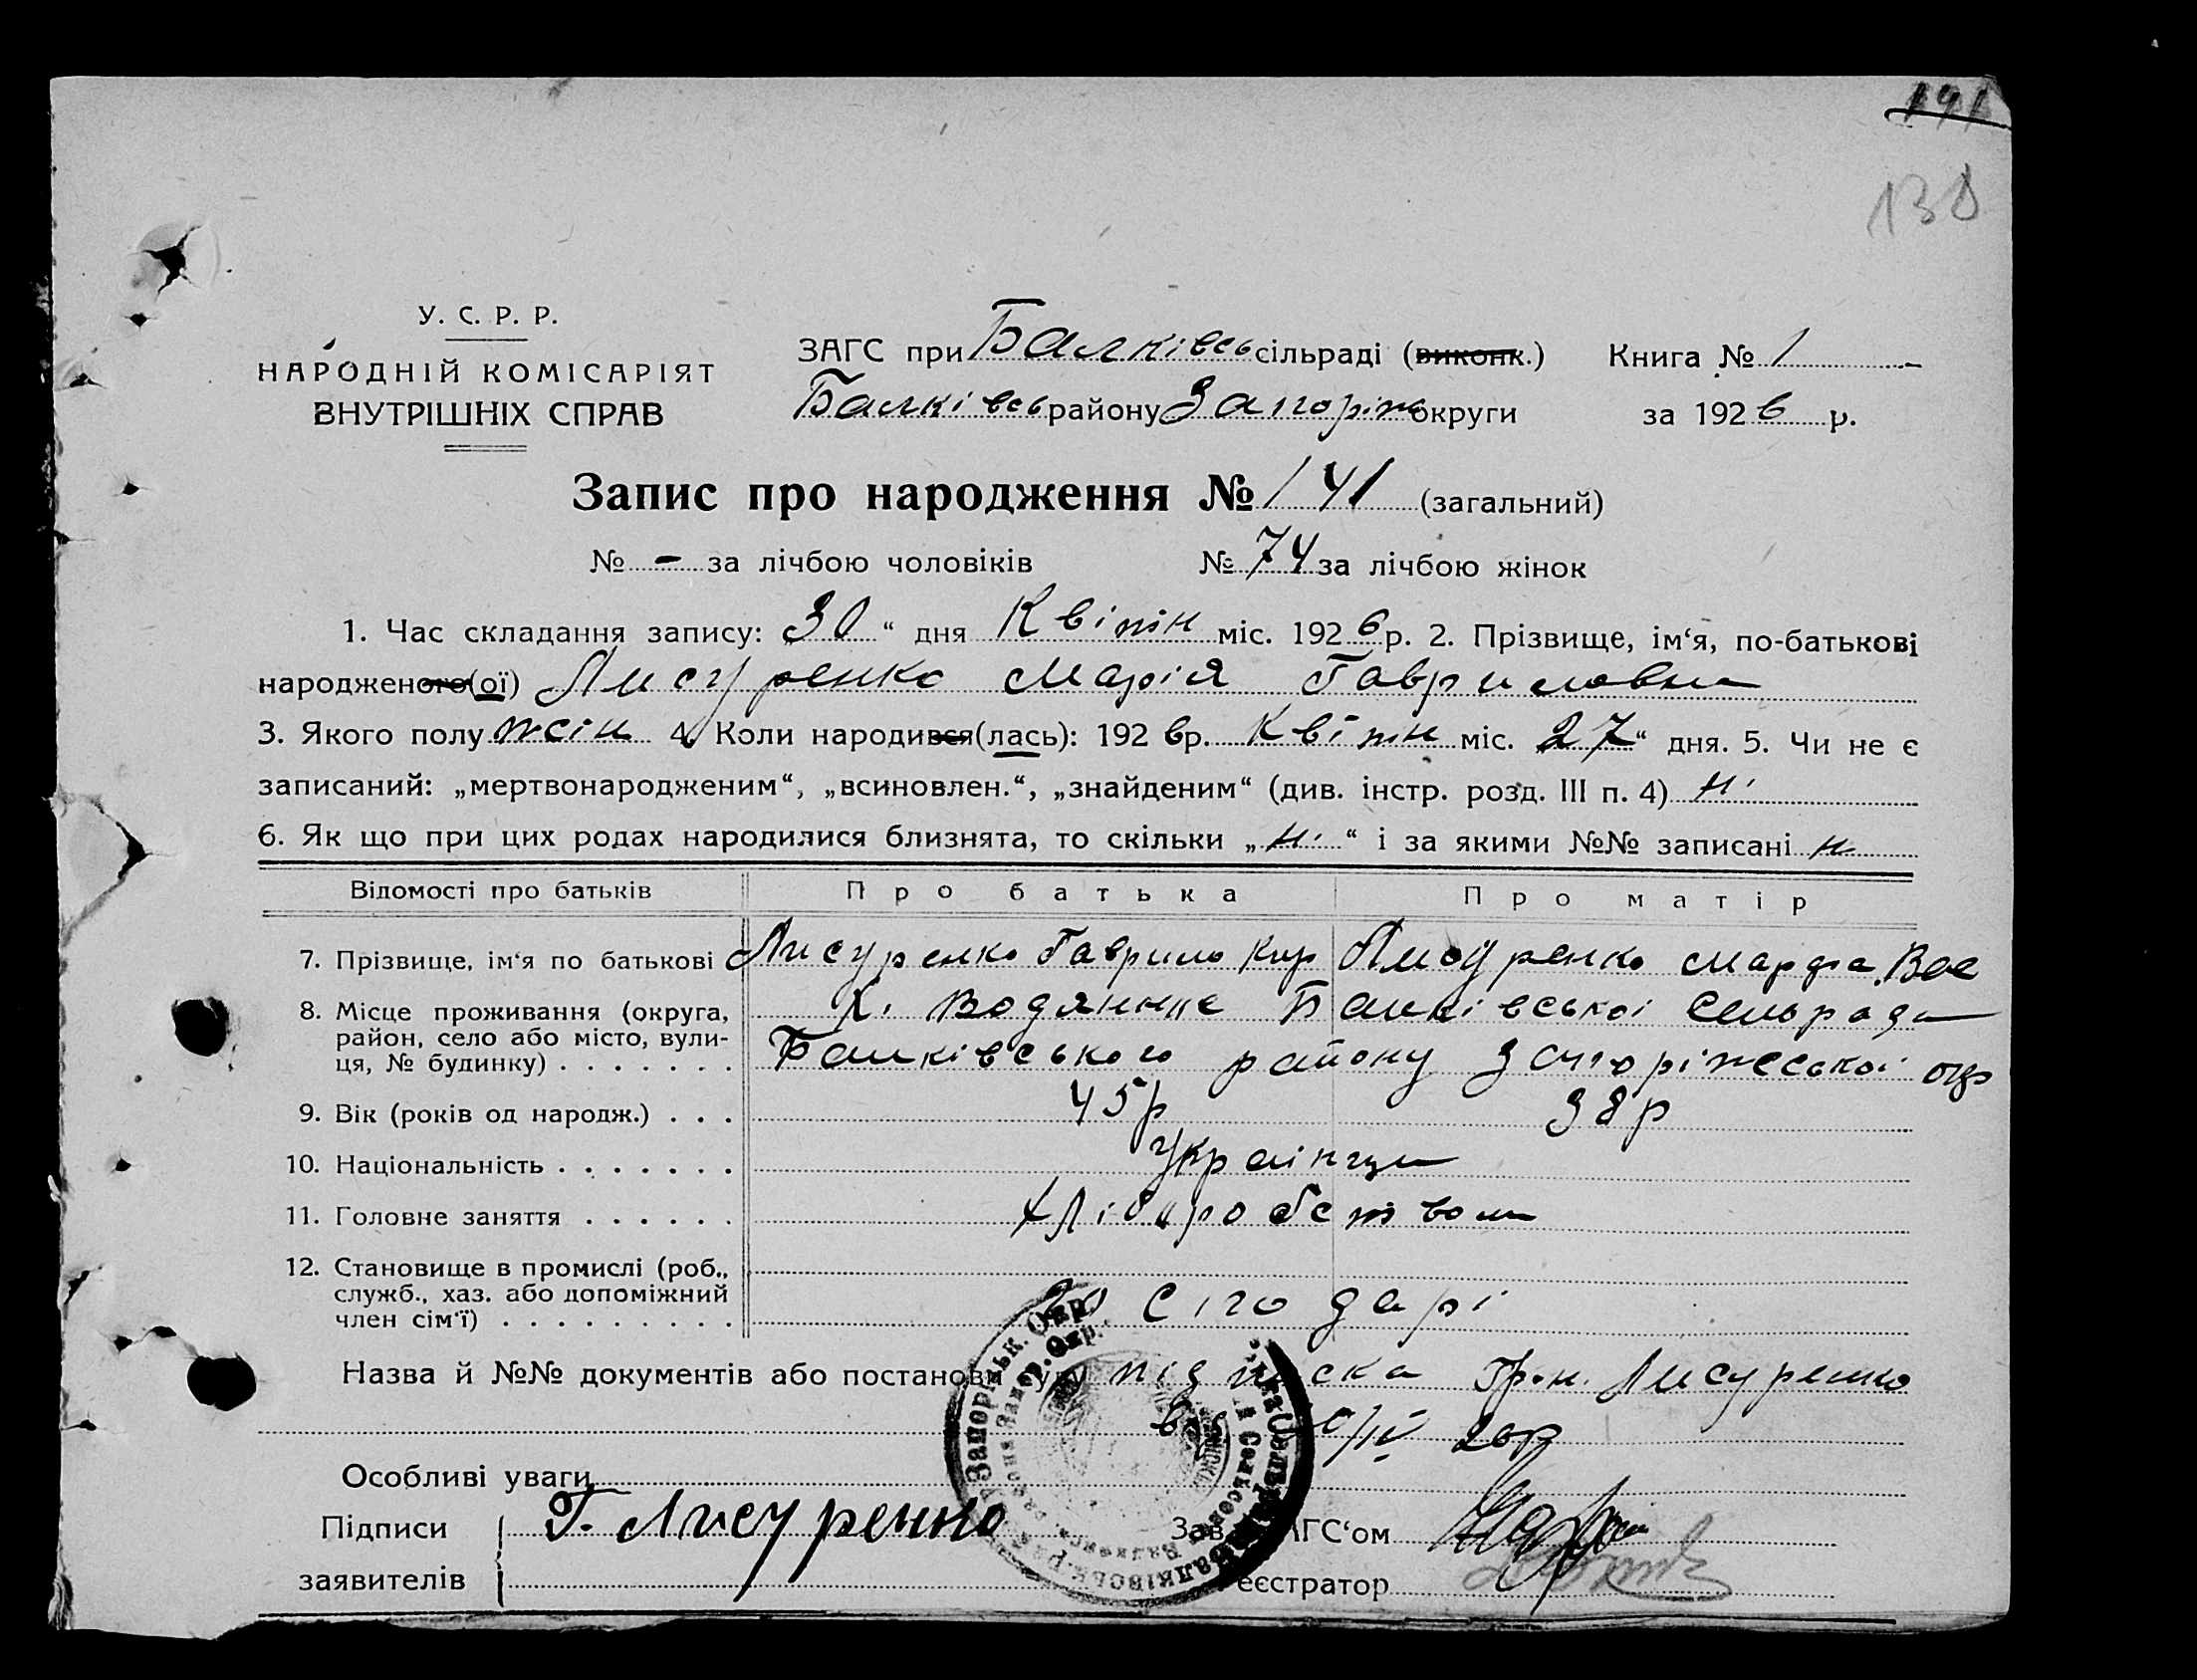 141
138
У. С. Р. Р.
НАРОДНІЙ КОМІСАРІЯТ
ВНУТРІШНІХ СПРАВ
ЗАГС при Балківсь сільраді (виконк.) Книга № 1
Балківсь району Запоріж округи за 1926 р.
Запис про народження № 141 (загальний)
№ - за лічбою чоловіків № 74 за лічбою жінок
1. Час складання запису: „30“ дня Квітн міс. 1926 р. 2. Прізвище, ім‘я, по-батькові
народженого(ої) Лисуренко Марія Гавриловна
3. Якого полу жін 4. Коли народився(лась): 1926 р. Квітн міс. „27“ дня. 5. Чи не є
записаний: „мертвонародженим“, „всиновлен.“, „знайденим“ (див. інстр. розд. III п. 4) ні
6. Як що при цих родах народилися близнята, то скільки „ні“ і за якими №№ записані н
Відомості про батьків Про батька Про матір
7. Прізвище, ім‘я по батькові Лисуренко Гаврило Кир Лисуренко Марфа Вас
8. Місце проживання (округа, Х. Водянник Балківської Сельради
район, село або місто, вули-
ця, № будинку) . . . . . . . Балківського району Запоріжської окр
9. Вік (років од народж.) . . . 45р 38р
10. Національність . . . . . . . Українци
11. Головне заняття . . . . . . хліборобством
12. Становище в промислі (роб.,
служб., хаз. або допоміжний
член сім‘ї) . . . . . . . . . господарі
Назва й №№ документів або постанови суду підписка Гр-н. Лисуренко
від /IV 26р
Особливі уваги
Підписи Г. Лисуренко Зав. ЗАГС‘ом
заявителів Реєстратор